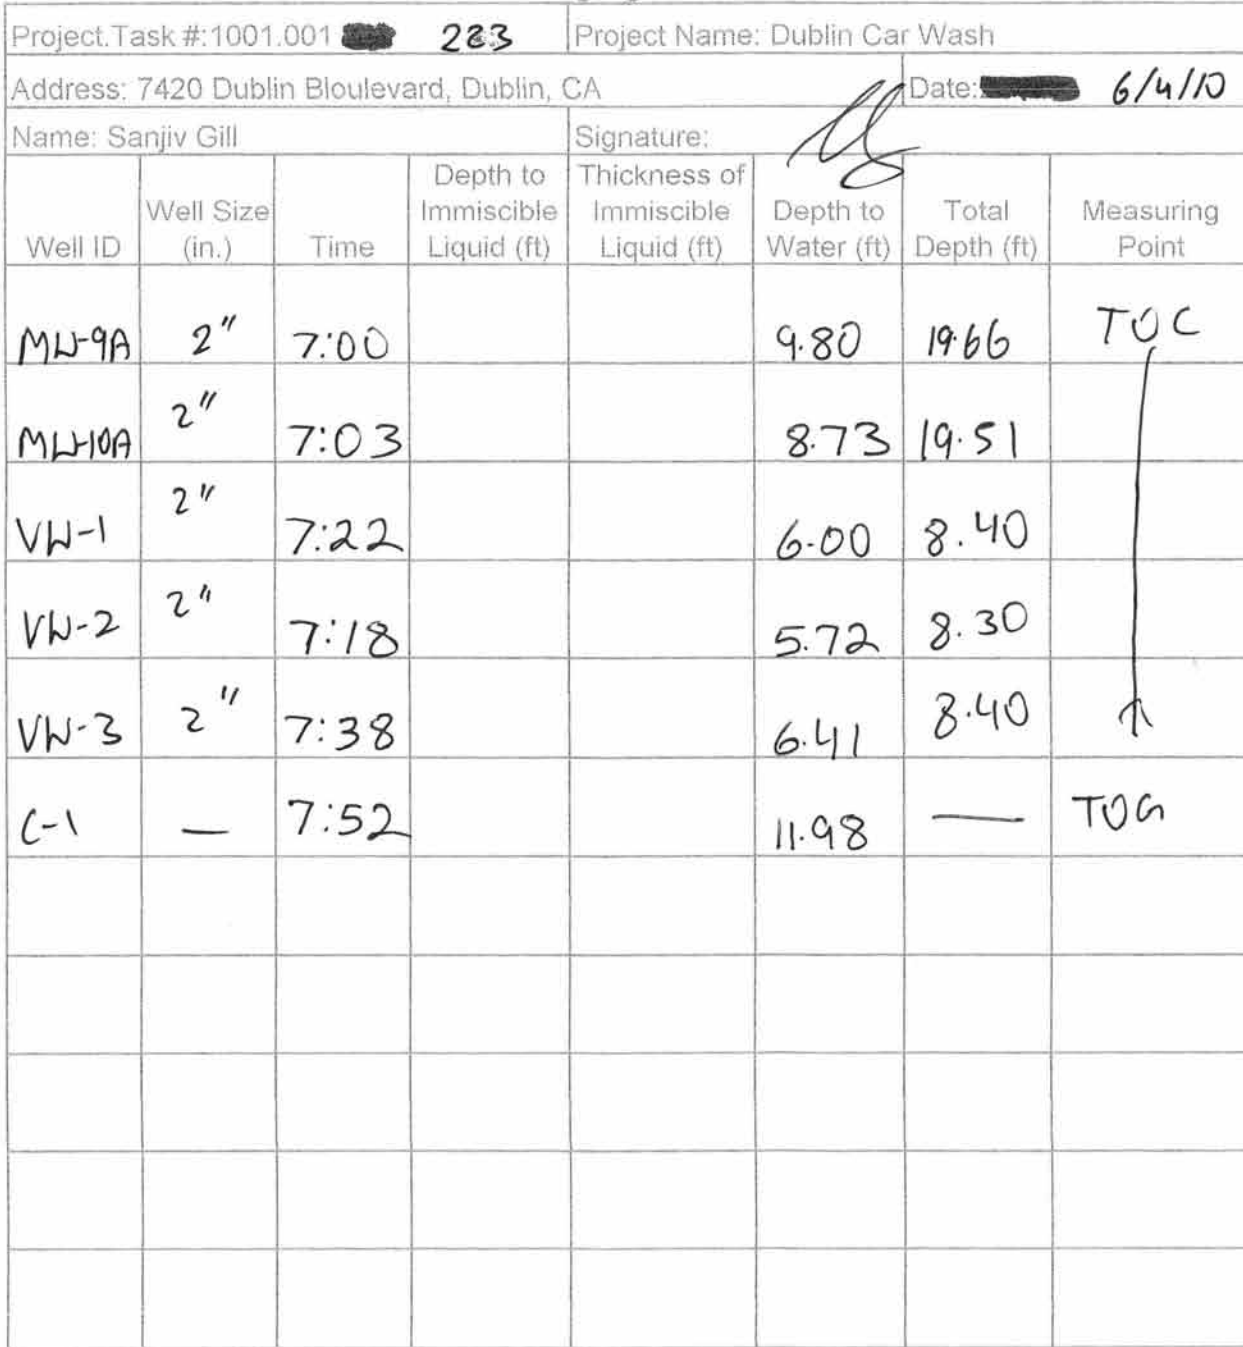 Project.Task #:1001.001 223 Project Name: Dublin Car Wash
Address: 7420 Dublin Bloulevard, Dublin, CA Date: 6/4/10
Name: Sanjiv Gill Signature:
Well ID Well Size (in.) Time Depth to Immiscible Liquid (ft) Thickness of Immiscible Liquid (ft) Depth to Water (ft) Total Depth (ft) Measuring Point
MW-9A 2" 7:00 9.80 19.66 TOC
MW-10A 2" 7:03 8.73 19.51
VW-1 2" 7:22 6.00 8.40
VW-2 2" 7:18 5.72 8.30
VW-3 2" 7:38 6.41 8.40
C-1 — 7:52 11.98 — TOG